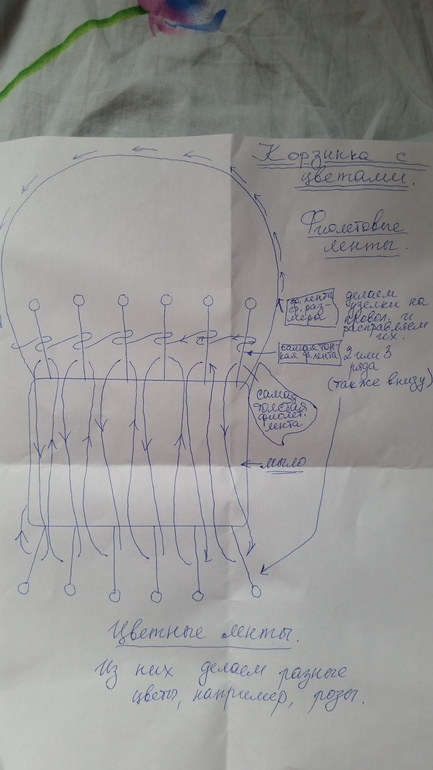 Корзинка с
цветами.
Фиолетовые
ленты.
ф. лента
ср. раз-
мера
делаем
узелки на
провол. и
расправляем
их.
самая тон-
кая ф. лента
2 или 3
ряда
(также внизу)
самая
толстая
фиолет.
лента
мыло
Цветные ленты.
Из них делаем разные
цветы, например, розы.